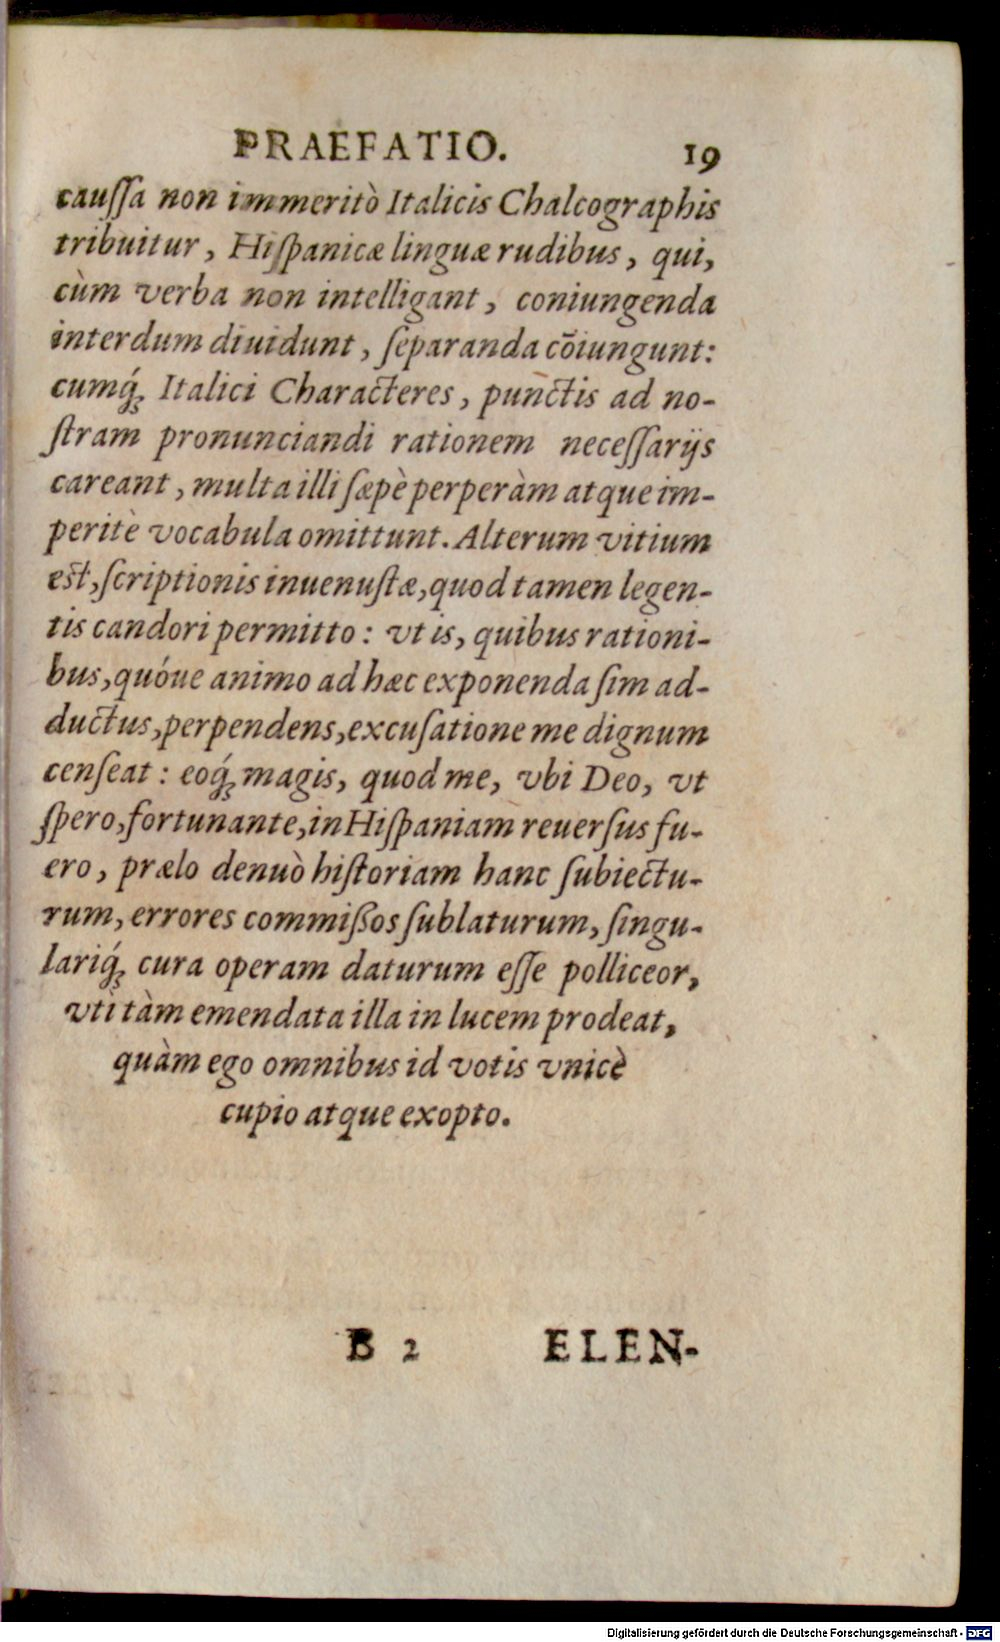 PRAEFATIO. 19
cauſſa non immeritò Italicis Chalcographis
tribuitur, Hiſpanicæ linguæ rudibus, qui,
cùm verba non intelligant, coniungenda
interdum diuidunt, ſeparanda cõiungunt:
cumq́ꝫ Italici Characteres, punctis ad no-
ſtram pronunciandi rationem neceſſarijs
careant, multa illi ſæpè perperàm atque im-
peritè vocabula omittunt. Alterum vitium
est, ſcriptionis inuenuſtæ, quod tamen legen-
tis candori permitto: vt is, quibus rationi-
bus, quóue animo ad hæc exponenda ſim ad-
ductus, perpendens, excuſatione me dignum
cenſeat: eoq́ꝫ magis, quod me, vbi Deo, vt
ſpero, fortunante, in Hiſpaniam reuerſus fu-
ero, prælo denuò hiſtoriam hanc ſubiectu-
rum, errores commißos ſublaturum, ſingu-
lariq́ꝫ cura operam daturum eſſe polliceor,
vti tàm emendata illa in lucem prodeat,
quàm ego omnibus id votis vnicè
cupio atque exopto.
B 2 ELEN-
Digitalisierung gefördert durch die Deutsche Forschungsgemeinschaft - DFG